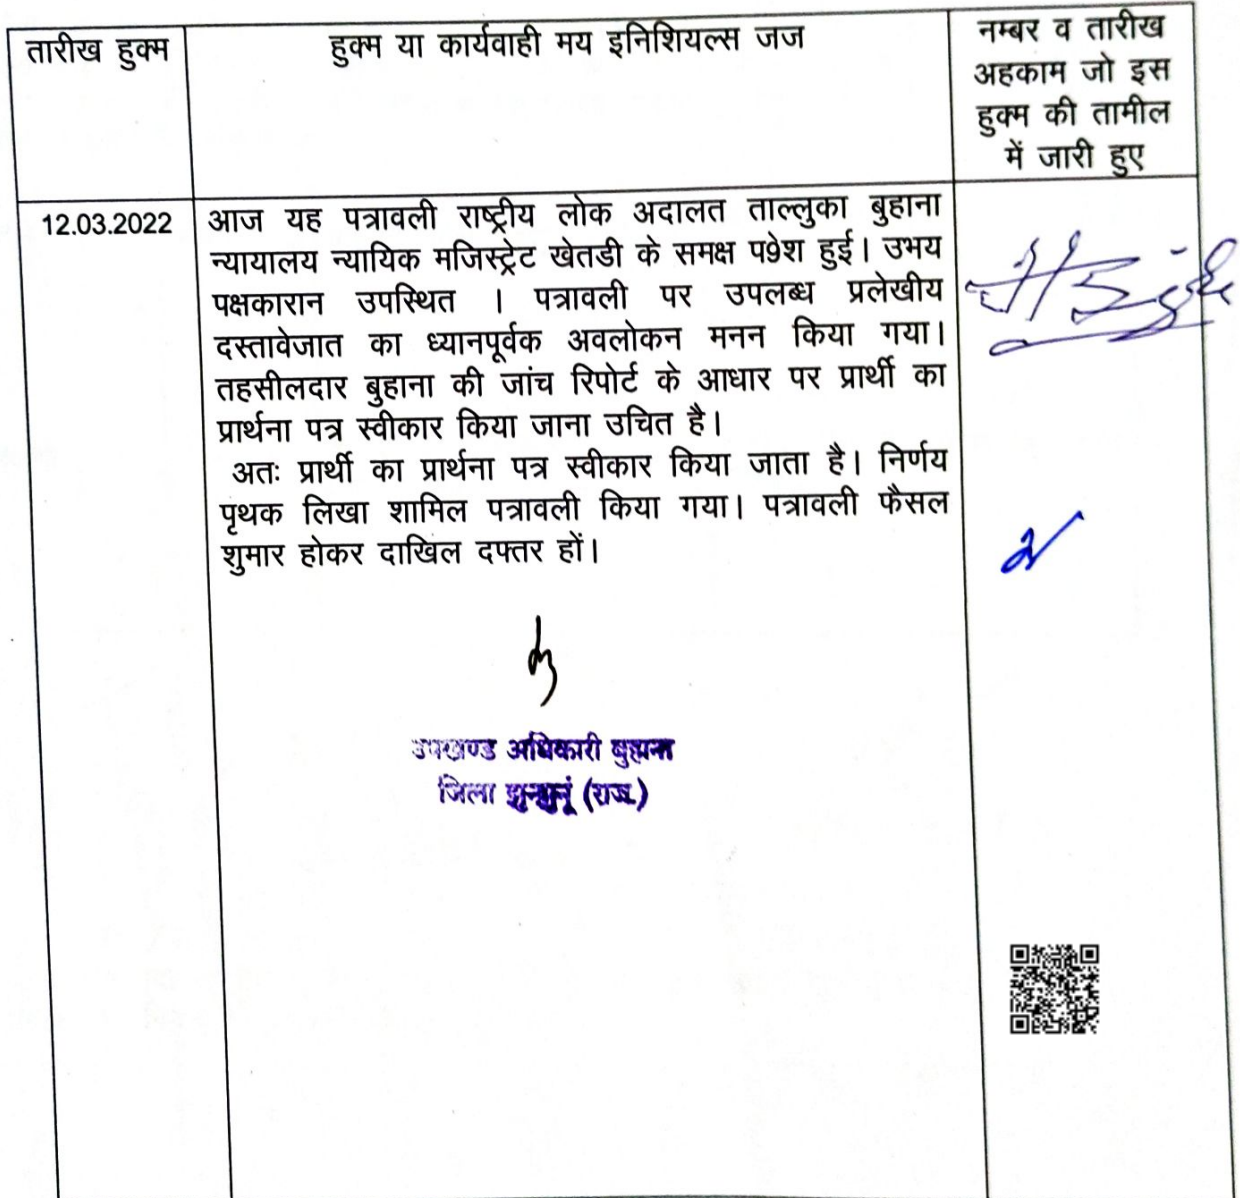 तारीख हुक्म
हुक्म या कार्यवाही मय इनिशियल्स जज
नम्बर व तारीख
अहकाम जो इस
हुक्म की तामील
में जारी हुए
12.03.2022
आज यह पत्रावली राष्ट्रीय लोक अदालत ताल्लुका बुहाना
न्यायालय न्यायिक मजिस्ट्रेट खेतडी के समक्ष प9ेश हुई। उभय
पक्षकारान उपस्थित । पत्रावली पर उपलब्ध प्रलेखीय
दस्तावेजात का ध्यानपूर्वक अवलोकन मनन किया गया।
तहसीलदार बुहाना की जांच रिपोर्ट के आधार पर प्रार्थी का
प्रार्थना पत्र स्वीकार किया जाना उचित है।
अतः प्रार्थी का प्रार्थना पत्र स्वीकार किया जाता है। निर्णय
पृथक लिखा शामिल पत्रावली किया गया। पत्रावली फैसल
शुमार होकर दाखिल दफ्तर हों।
उपखण्ड अधिकारी बुहाना
जिला झुन्झुनूं (राज.)